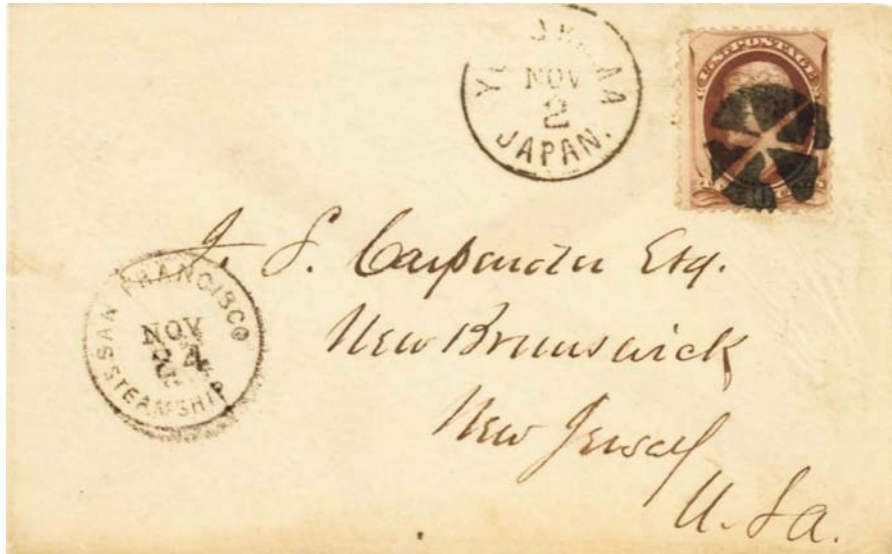 NOV
2
JAPAN.
U.S. POSTAGE
SAN FRANCISCO
NOV
24
STEAMSHIP
S. Carpender Esq.
New Brunswick
New Jersey
U.Sa.